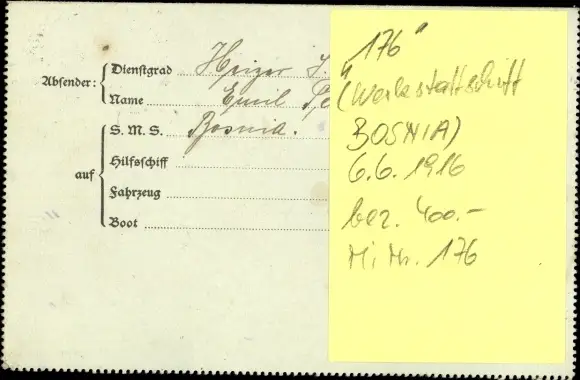 Absender:
Dienstgrad Heizer
Name Emil
auf
S. M. S. Bosnia.
Hilfsschiff
Fahrzeug
Boot
"176"
(Werkstattschiff
BOSNIA)
6.6.1916
bez. 400.-
Mi Nr. 176